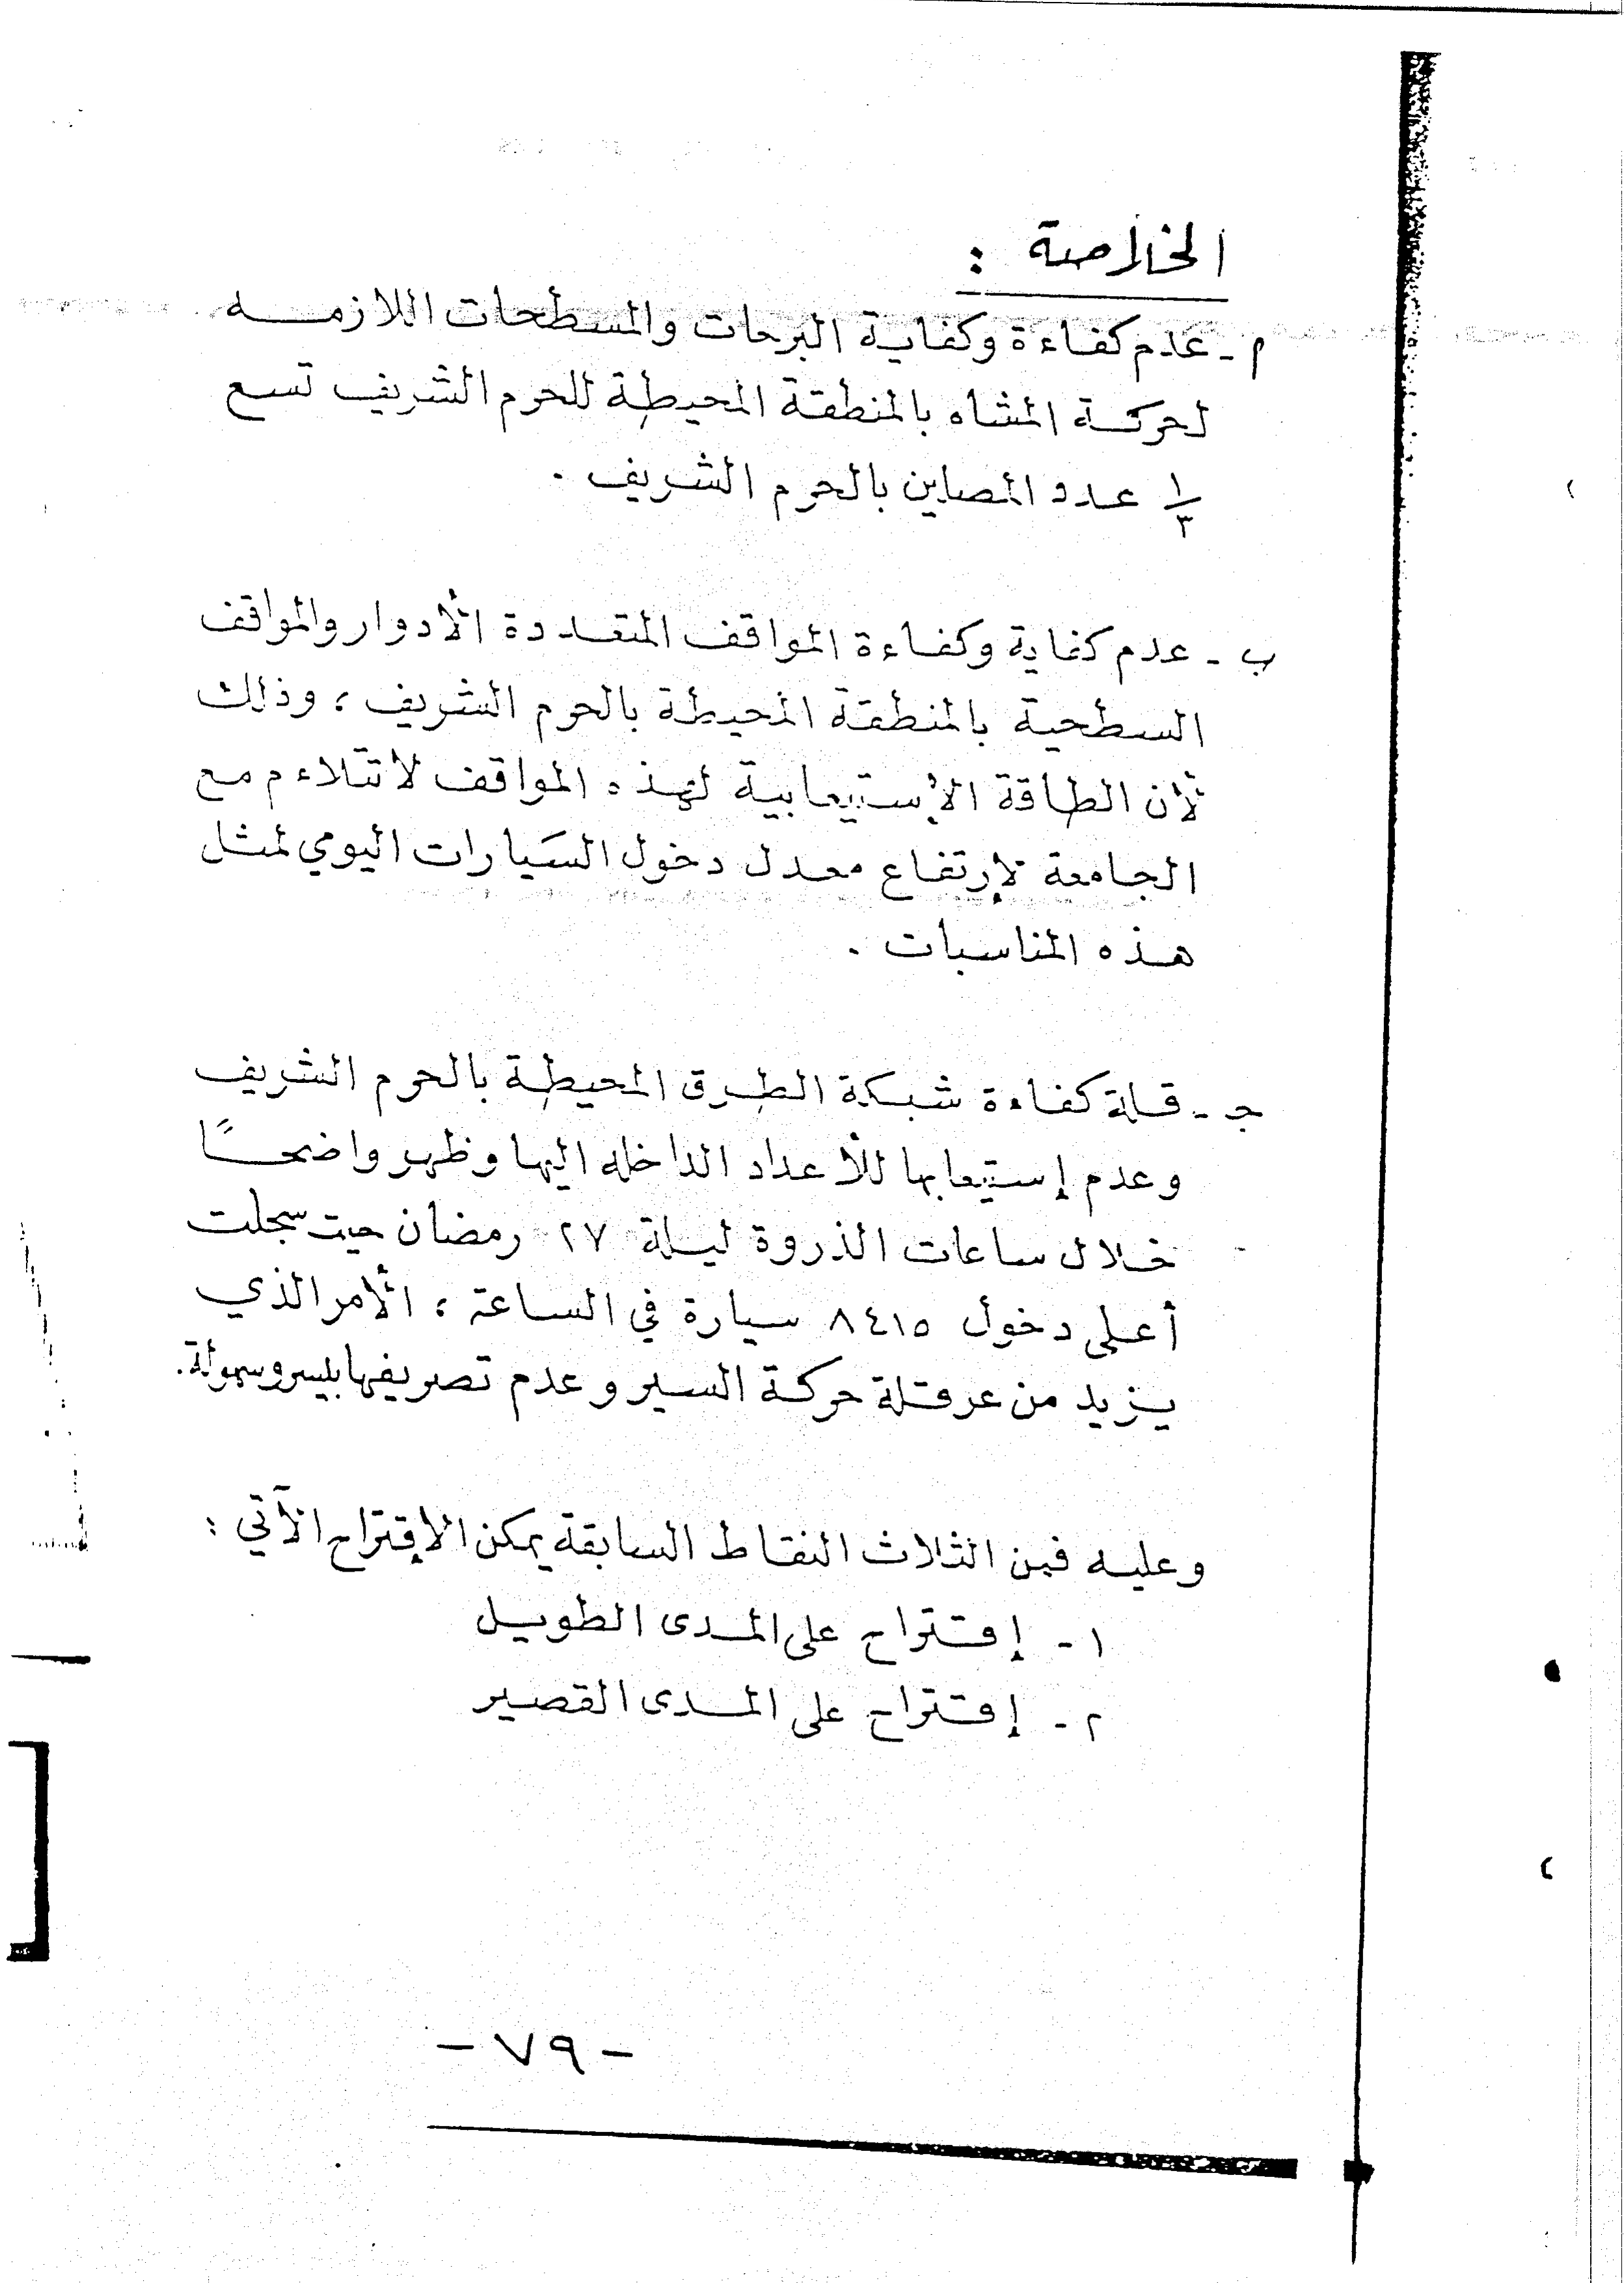 الخلاصة :
م - عدم كفاءة وكفاية البرحات والمسطحات اللازمه
لحركة المشاه بالمنطقة المحيطة للحرم الشريف تسع
١/٣ عدد المصلين بالحرم الشريف .
ب - عدم كفاية وكفاءة المواقف المتعددة الأدوار والمواقف
السطحية بالمنطقة المحيطة بالحرم الشريف ، وذلك
لأن الطاقة الإستيعابية لهذه المواقف لا تتلاءم مع
الجامعة لإرتفاع معدل دخول السيارات اليومي لمثل
هذه المناسبات .
جـ - قلة كفاءة شبكة الطرق المحيطة بالحرم الشريف
وعدم إستيعابها للأعداد الداخله اليها وظهر واضحاً
خلال ساعات الذروة ليلة ٢٧ رمضان حيت سجلت
أعلى دخول ٨٤١٥ سيارة في الساعة ، الأمر الذي
يزيد من عرقلة حركة السير وعدم تصريفها بيسر وسهولة .
وعليه فمن الثلاث النقاط السابقة يمكن الإقتراح الآتي :
١ - إقتراح على المدى الطويل
٢ - إقتراح على المدى القصير
- ٧٩ -